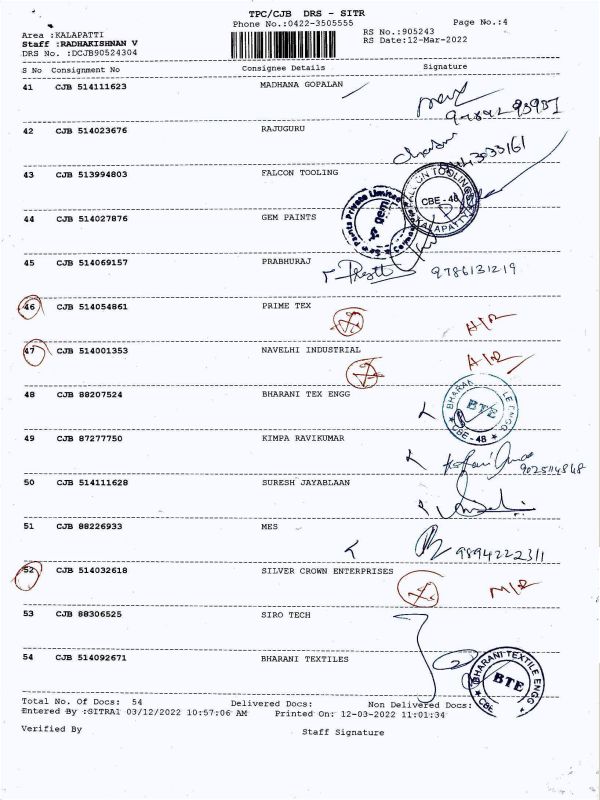 TPC/CJB DRS - SITR
Phone No.:0422-3505555 Page No.:4
Area :KALAPATTI RS No.:905243
Staff :RADHAKISHNAN V RS Date:12-Mar-2022
DRS No. :DCJB90524304
S No Consignment No Consignee Details Signature
41 CJB 514111623 MADHANA GOPALAN
42 CJB 514023676 RAJUGURU
43 CJB 513994803 FALCON TOOLING
CBE - 48
44 CJB 514027876 GEM PAINTS
gem
KALAPATTY
45 CJB 514069157 PRABHURAJ
9786131219
46 CJB 514054861 PRIME TEX
47 CJB 514001353 NAVELHI INDUSTRIAL
48 CJB 88207524 BHARANI TEX ENGG
BTE
CBE - 48
49 CJB 87277750 KIMPA RAVIKUMAR
50 CJB 514111628 SURESH JAYABLAAN
51 CJB 88226933 MES
9894222311
52 CJB 514032618 SILVER CROWN ENTERPRISES
53 CJB 88306525 SIRO TECH
54 CJB 514092671 BHARANI TEXTILES
BHARANI TEXTILE ENGG
BTE
CBE
Total No. Of Docs: 54 Delivered Docs: Non Delivered Docs:
Entered By :SITRA1 03/12/2022 10:57:06 AM Printed On: 12-03-2022 11:01:34
Verified By Staff Signature